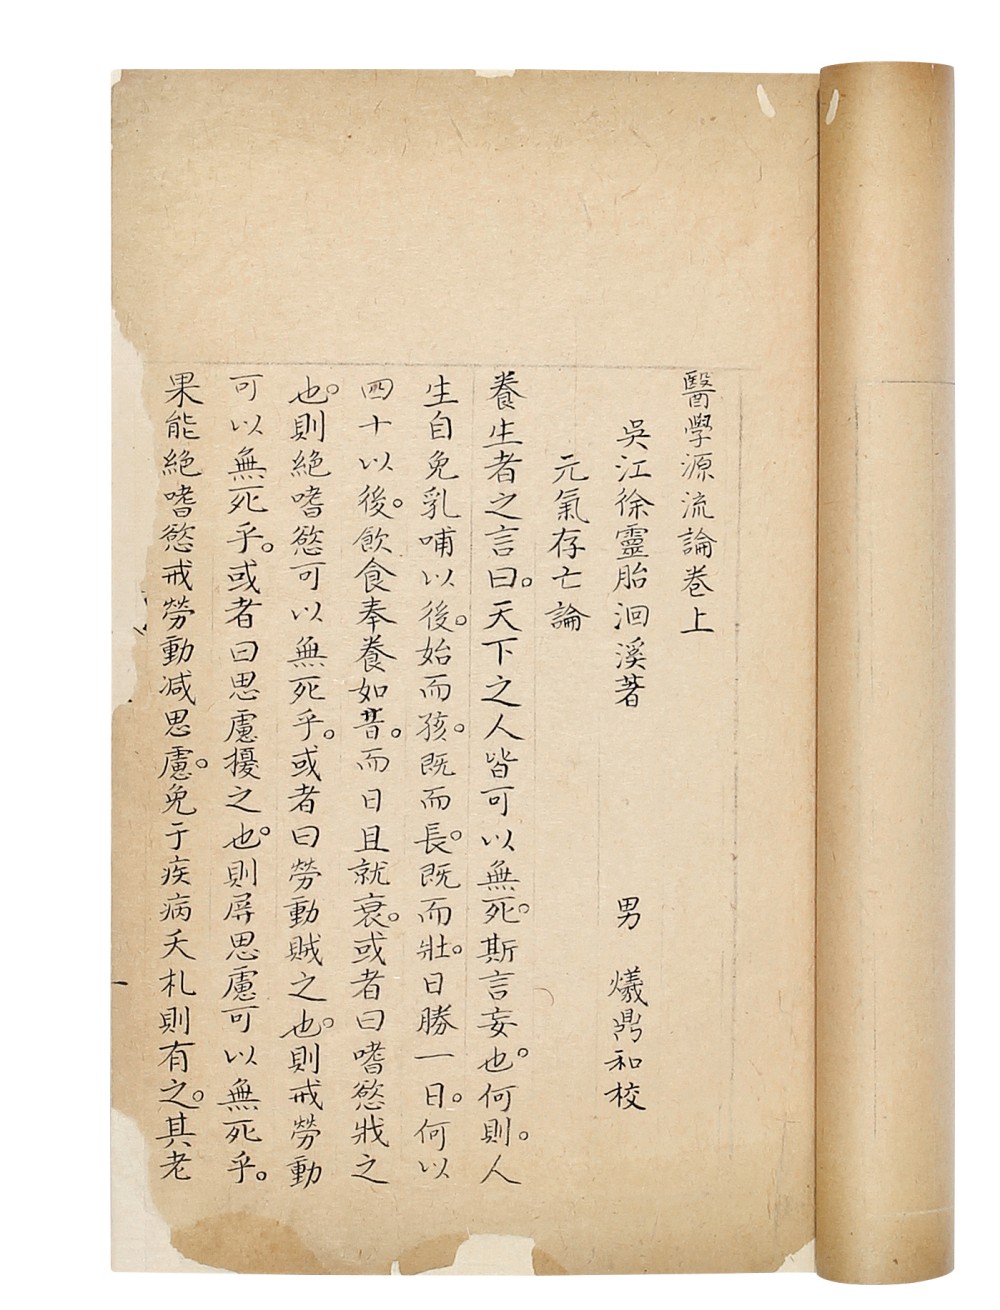 醫學源流論卷上
吳江徐靈胎洄溪著 男 爔鼎和校
元氣存亡論
養生者之言曰。天下之人皆可以無死。斯言妄也。何則。人
生自免乳哺以後。始而孩。既而長。既而壯。日勝一日。何以
四十以後。飲食奉養如昔。而日且就衰。或者曰嗜慾戕之
也。則絕嗜慾可以無死乎。或者曰勞動賊之也。則戒勞動
可以無死乎。或者曰思慮擾之也。則屏思慮可以無死乎。
果能絕嗜慾戒勞動减思慮。免于疾病夭札則有之。其老